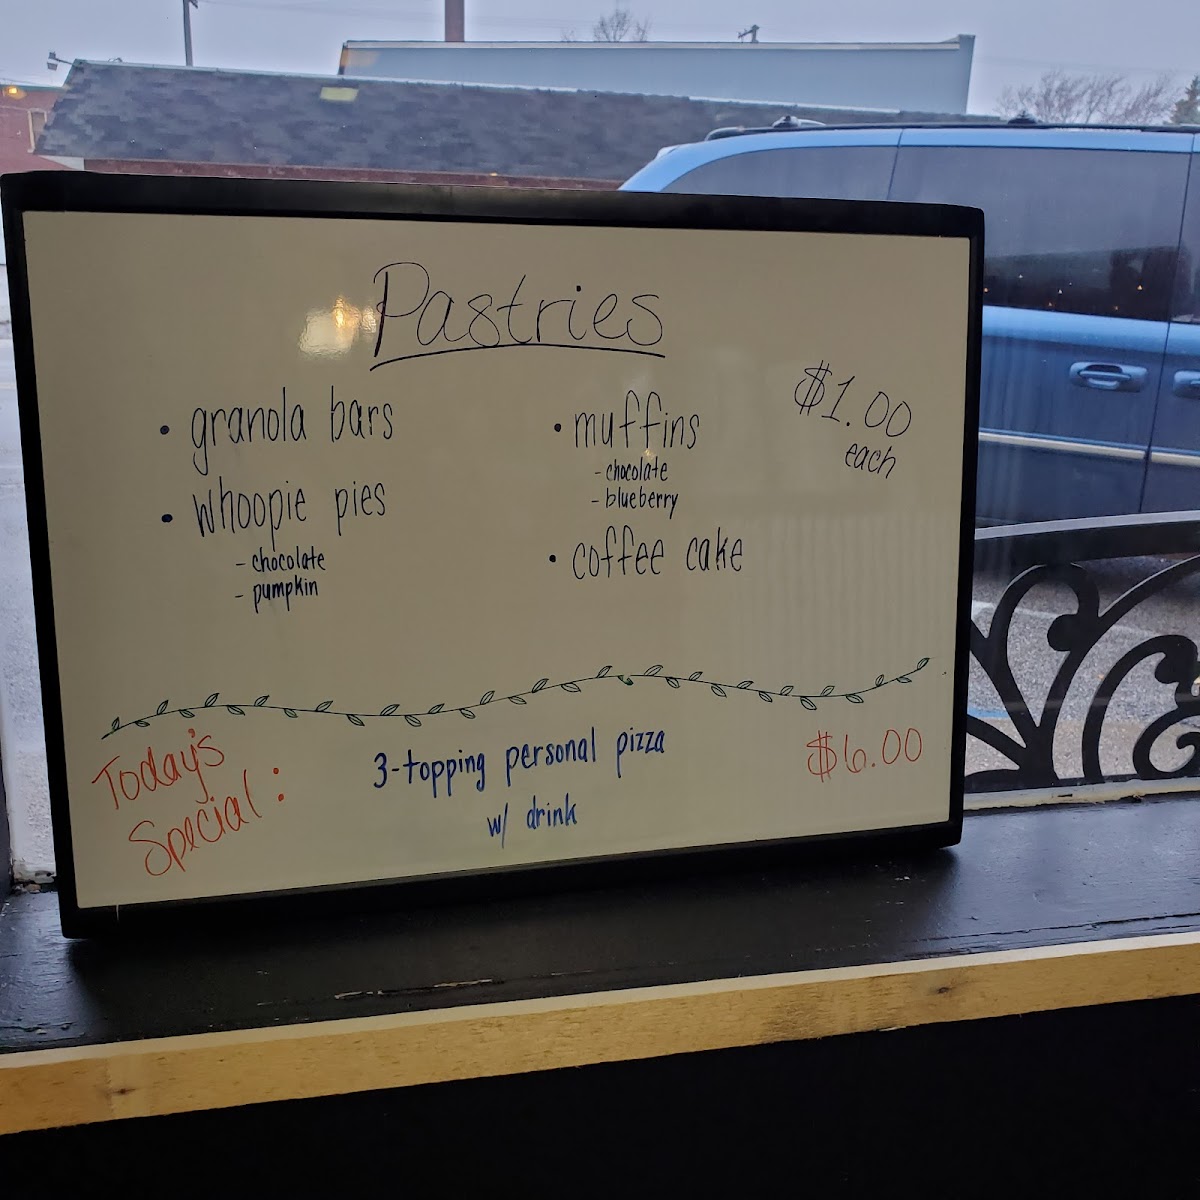 Pastries
• granola bars
• whoopie pies
- chocolate
- pumpkin
• muffins
- chocolate
- blueberry
• coffee cake
$1.00
each
Today's
Special:
3-topping personal pizza
w/ drink
$6.00